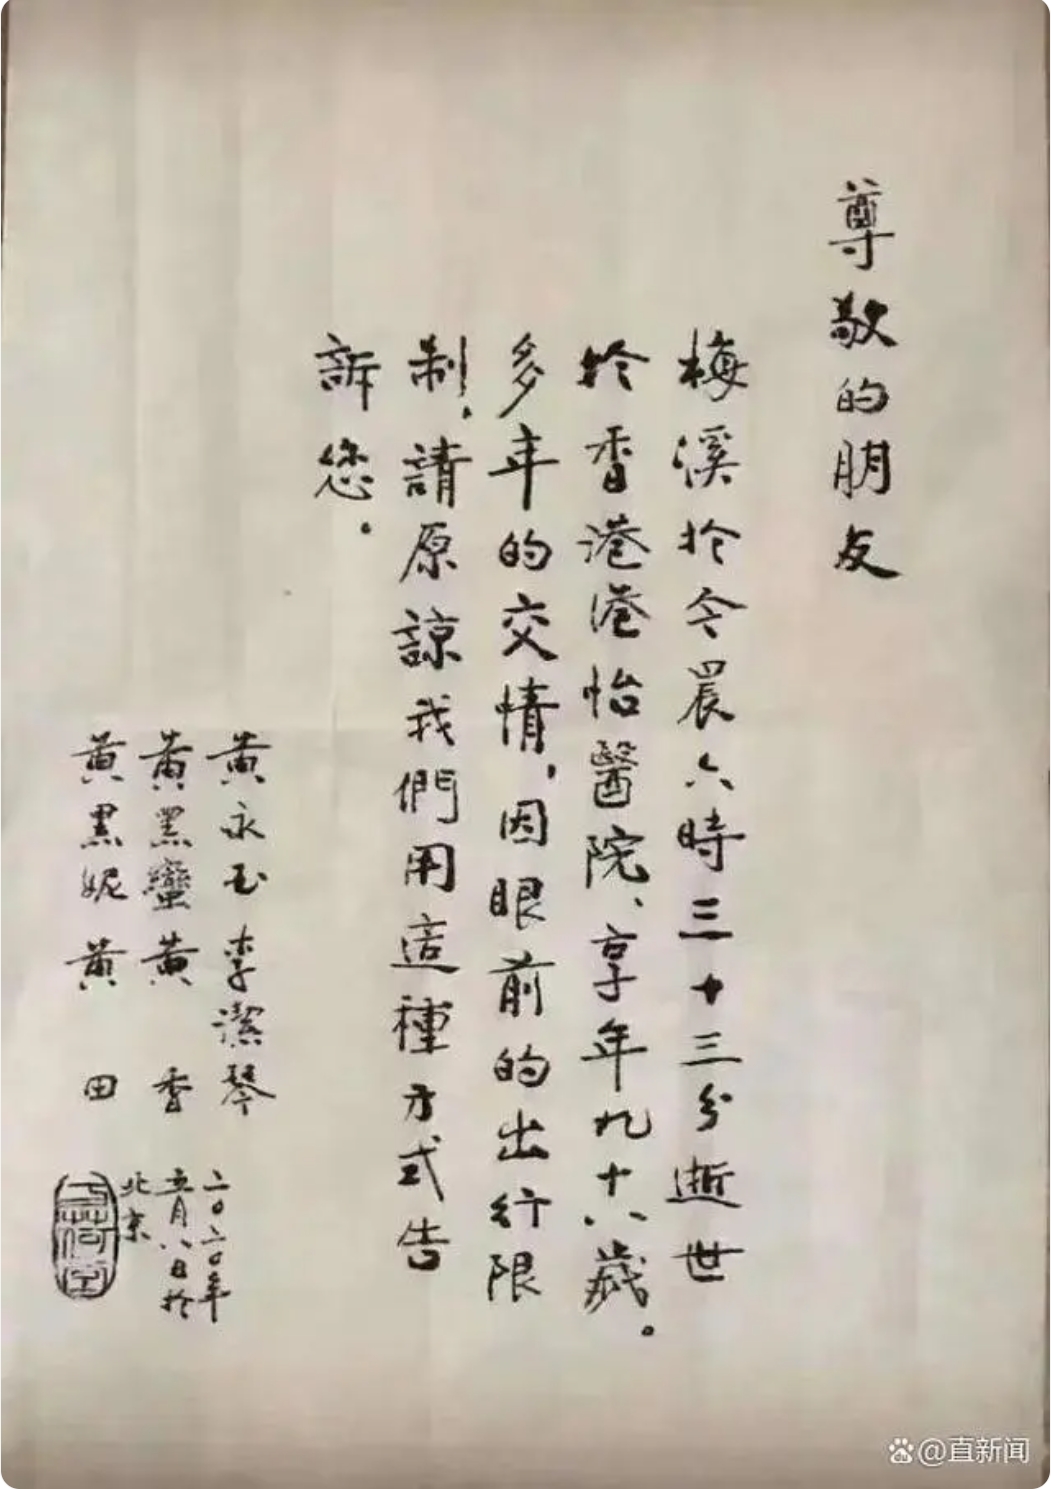 尊敬的朋友
梅溪於今晨六時三十三分逝世
於香港港怡醫院、享年九十八歲。
多年的交情,因眼前的出行限
制,請原諒我們用這種方式告
訴您。
黄永玉 李潔琴
黄黑蠻 黄香
黄黑妮 黄田
二〇二〇年
五月八日於
北京
@直新闻